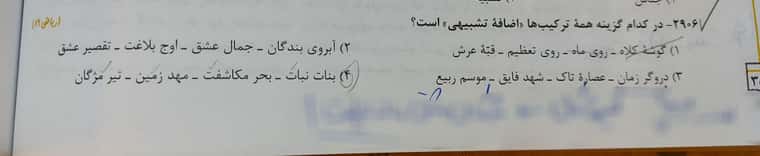 ۲۹۰۶- در کدام گزینه همهٔ ترکیب‌ها «اضافهٔ تشبیهی» است؟ (ریاضی ۹۱)
۱) گوشهٔ کلاه ـ روی ماه ـ روی تعظیم ـ قبّهٔ عرش ۲) آبروی بندگان ـ جمال عشق ـ اوج بلاغت ـ تقصیر عشق
۳) دروگر زمان ـ عصارهٔ تاک ـ شهد فایق ـ موسم ربیع ۴) بنات نبات ـ بحر مکاشفت ـ مهد زمین ـ تیر مژگان